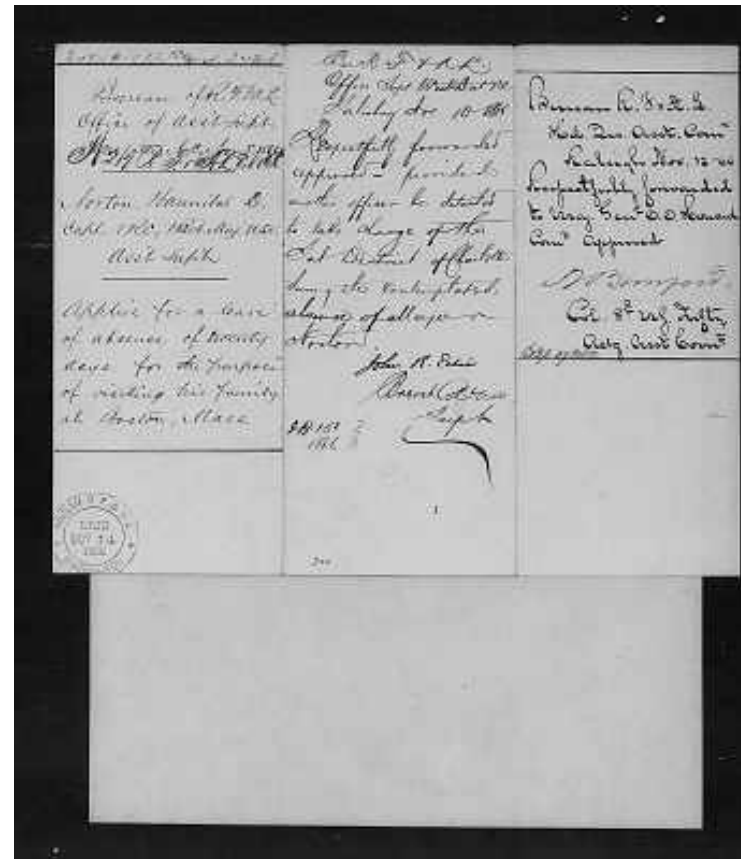 Bureau of R F & A L
Office of Asst Supt.
Norton Hannibal D.
Capt. VRC. Bvt Maj USV.
Asst Supt
Applies for a leave
of absence of twenty
days for the purpose
of visiting his family
at Boston, Mass
Bu R F & A L.
Office Supt West Dist NC
Salisbury Nov 10 1866
Respectfully forwarded
approved provided
another officer be detailed
to take charge of the
Sub District of Charlotte
during the contemplated
absence of Major
Norton
John R. Edie
Supt
Bureau R. F & A. L.
Hd. Qrs. Asst. Comr
Raleigh Nov. 12 66
Respectfully forwarded
to Maj Genl O. O. Howard
Comr approved
Col. 8th U.S. Infty
Actg Asst Comr